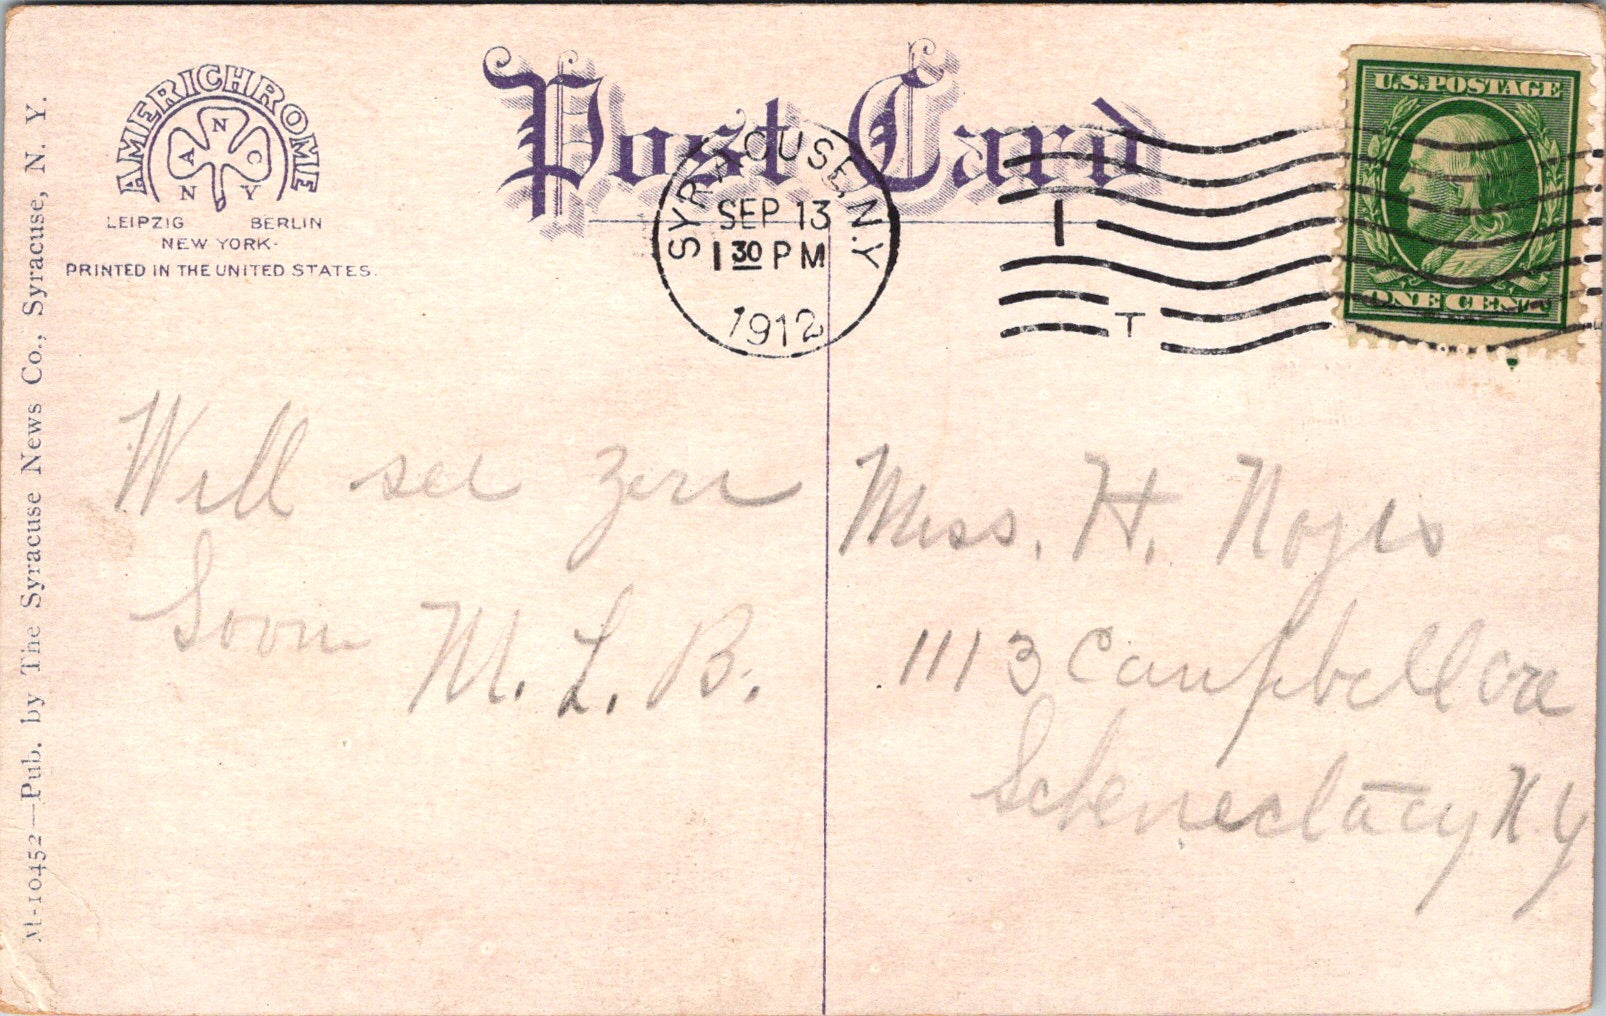 Post Card
AMERICHROME
N
A C
N Y
LEIPZIG BERLIN
NEW YORK.
PRINTED IN THE UNITED STATES.
M-10452—Pub. by The Syracuse News Co., Syracuse, N. Y.
SYRACUSE, N.Y.
SEP 13
1 30 PM
1912
1
T
U.S. POSTAGE
ONE CENT
Will see you
Soon
M. L. B.
Miss. H. Noyes
1113 Campbell ave
Schenectady N Y